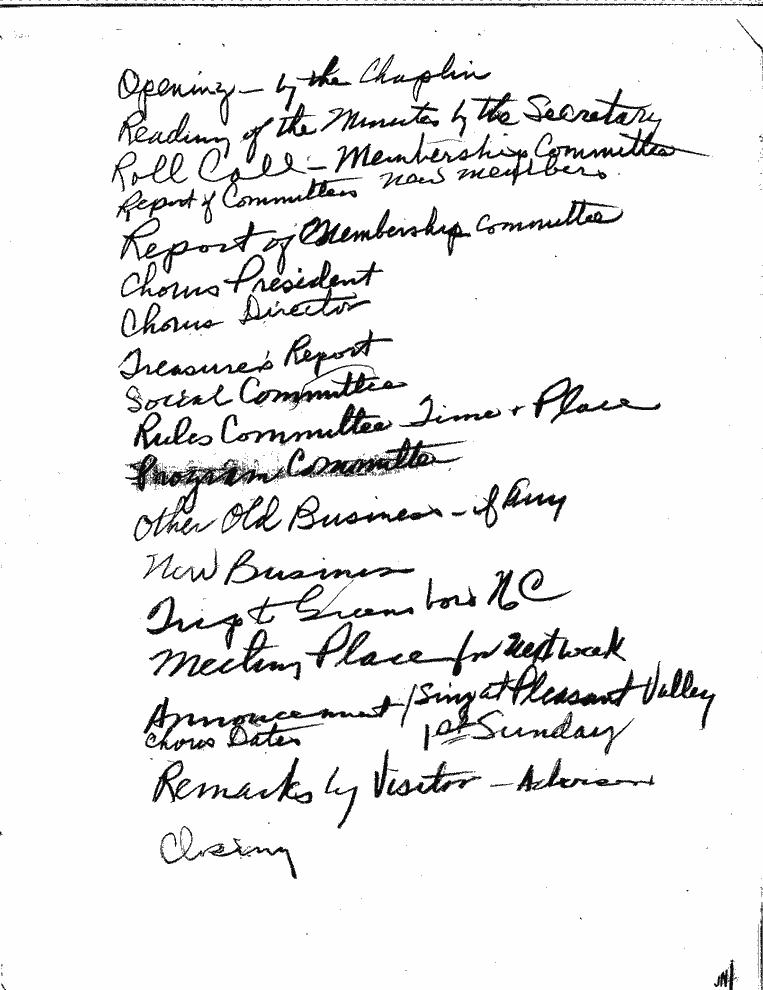 Opening - by the Chaplin
Reading of the Minutes by the Secretary
Roll Call - Membership Committee
Report of Committees New members
Report of Membership Committee
Chorus President
Chorus Director
Treasure's Report
Social Committee
Rules Committee Time + Place
Program Committee
Other Old Business - if Any
New Business
Trip to Greensboro NC
Meeting Place for next week
Announcement / Sing at Pleasant Valley
Chorus Dates 1st Sunday
Remarks by Visitor -
Closing